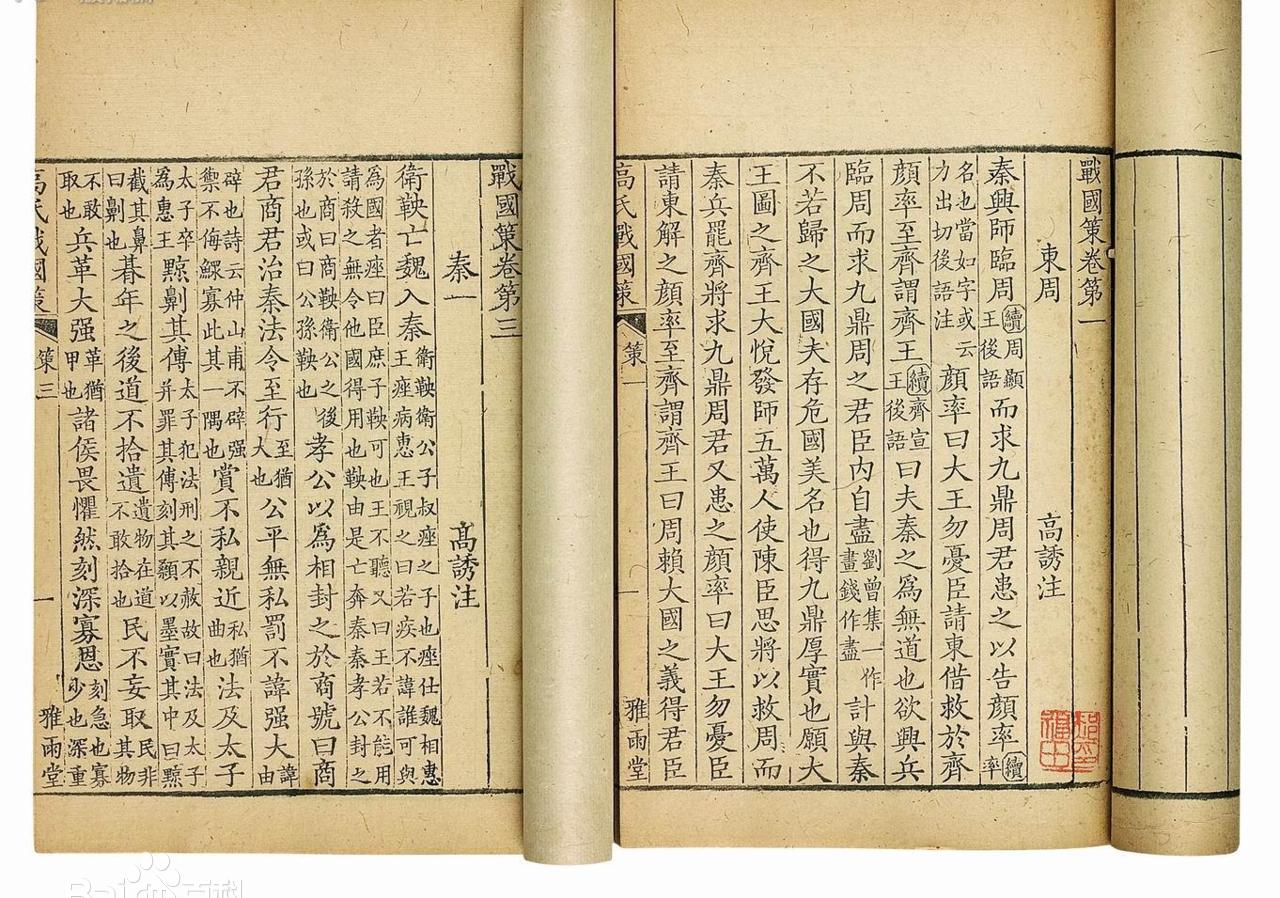 戰國策卷第一
東周 高誘注
秦興師臨周續周顯王後語而求九鼎周君患之以告顏率續率
名也當如字或云力出切後語注顏率曰大王勿憂臣請東借救於齊
顏率至齊謂齊王續齊宣王後語曰夫秦之爲無道也欲興兵
臨周而求九鼎周之君臣內自盡劉曾集一作畫錢作盡計與秦
不若歸之大國夫存危國美名也得九鼎厚實也願大
王圖之齊王大悅發師五萬人使陳臣思將以救周而
秦兵罷齊將求九鼎周君又患之顏率曰大王勿憂臣
請東解之顏率至齊謂齊王曰周賴大國之義得君臣
高氏戰國策 策一 一 雅雨堂
戰國策卷第三
秦一 高誘注
衛鞅亡魏入秦衛鞅衛公子叔痤之子也痤仕魏相惠王痤病惠王視之曰若疾不諱誰可與
爲國者痤曰臣庶子鞅可也王不聽又曰王若不能用請殺之無令他國得用也鞅由是亡奔秦秦孝公封之
於商曰商鞅衛公之後孫也或曰公孫鞅也孝公以爲相封之於商號曰商
君商君治秦法令至行至猶大也公平無私罰不諱强大諱由
辟也詩云仲山甫不辟强禦不侮鰥寡此其一隅也賞不私親近私猶曲也法及太子
太子卒爲惠王黥劓其傅太子犯法刑之不赦故曰法及太子并罪其傅刻其顙以墨實其中曰黥
截其鼻曰劓也朞年之後道不拾遺遺物在道不敢拾也民不妄取民非其物
不敢取也兵革大强革猶甲也諸侯畏懼然刻深寡恩刻急也寡少也深重
高氏戰國策 策三 一 雅雨堂
Bai 百科